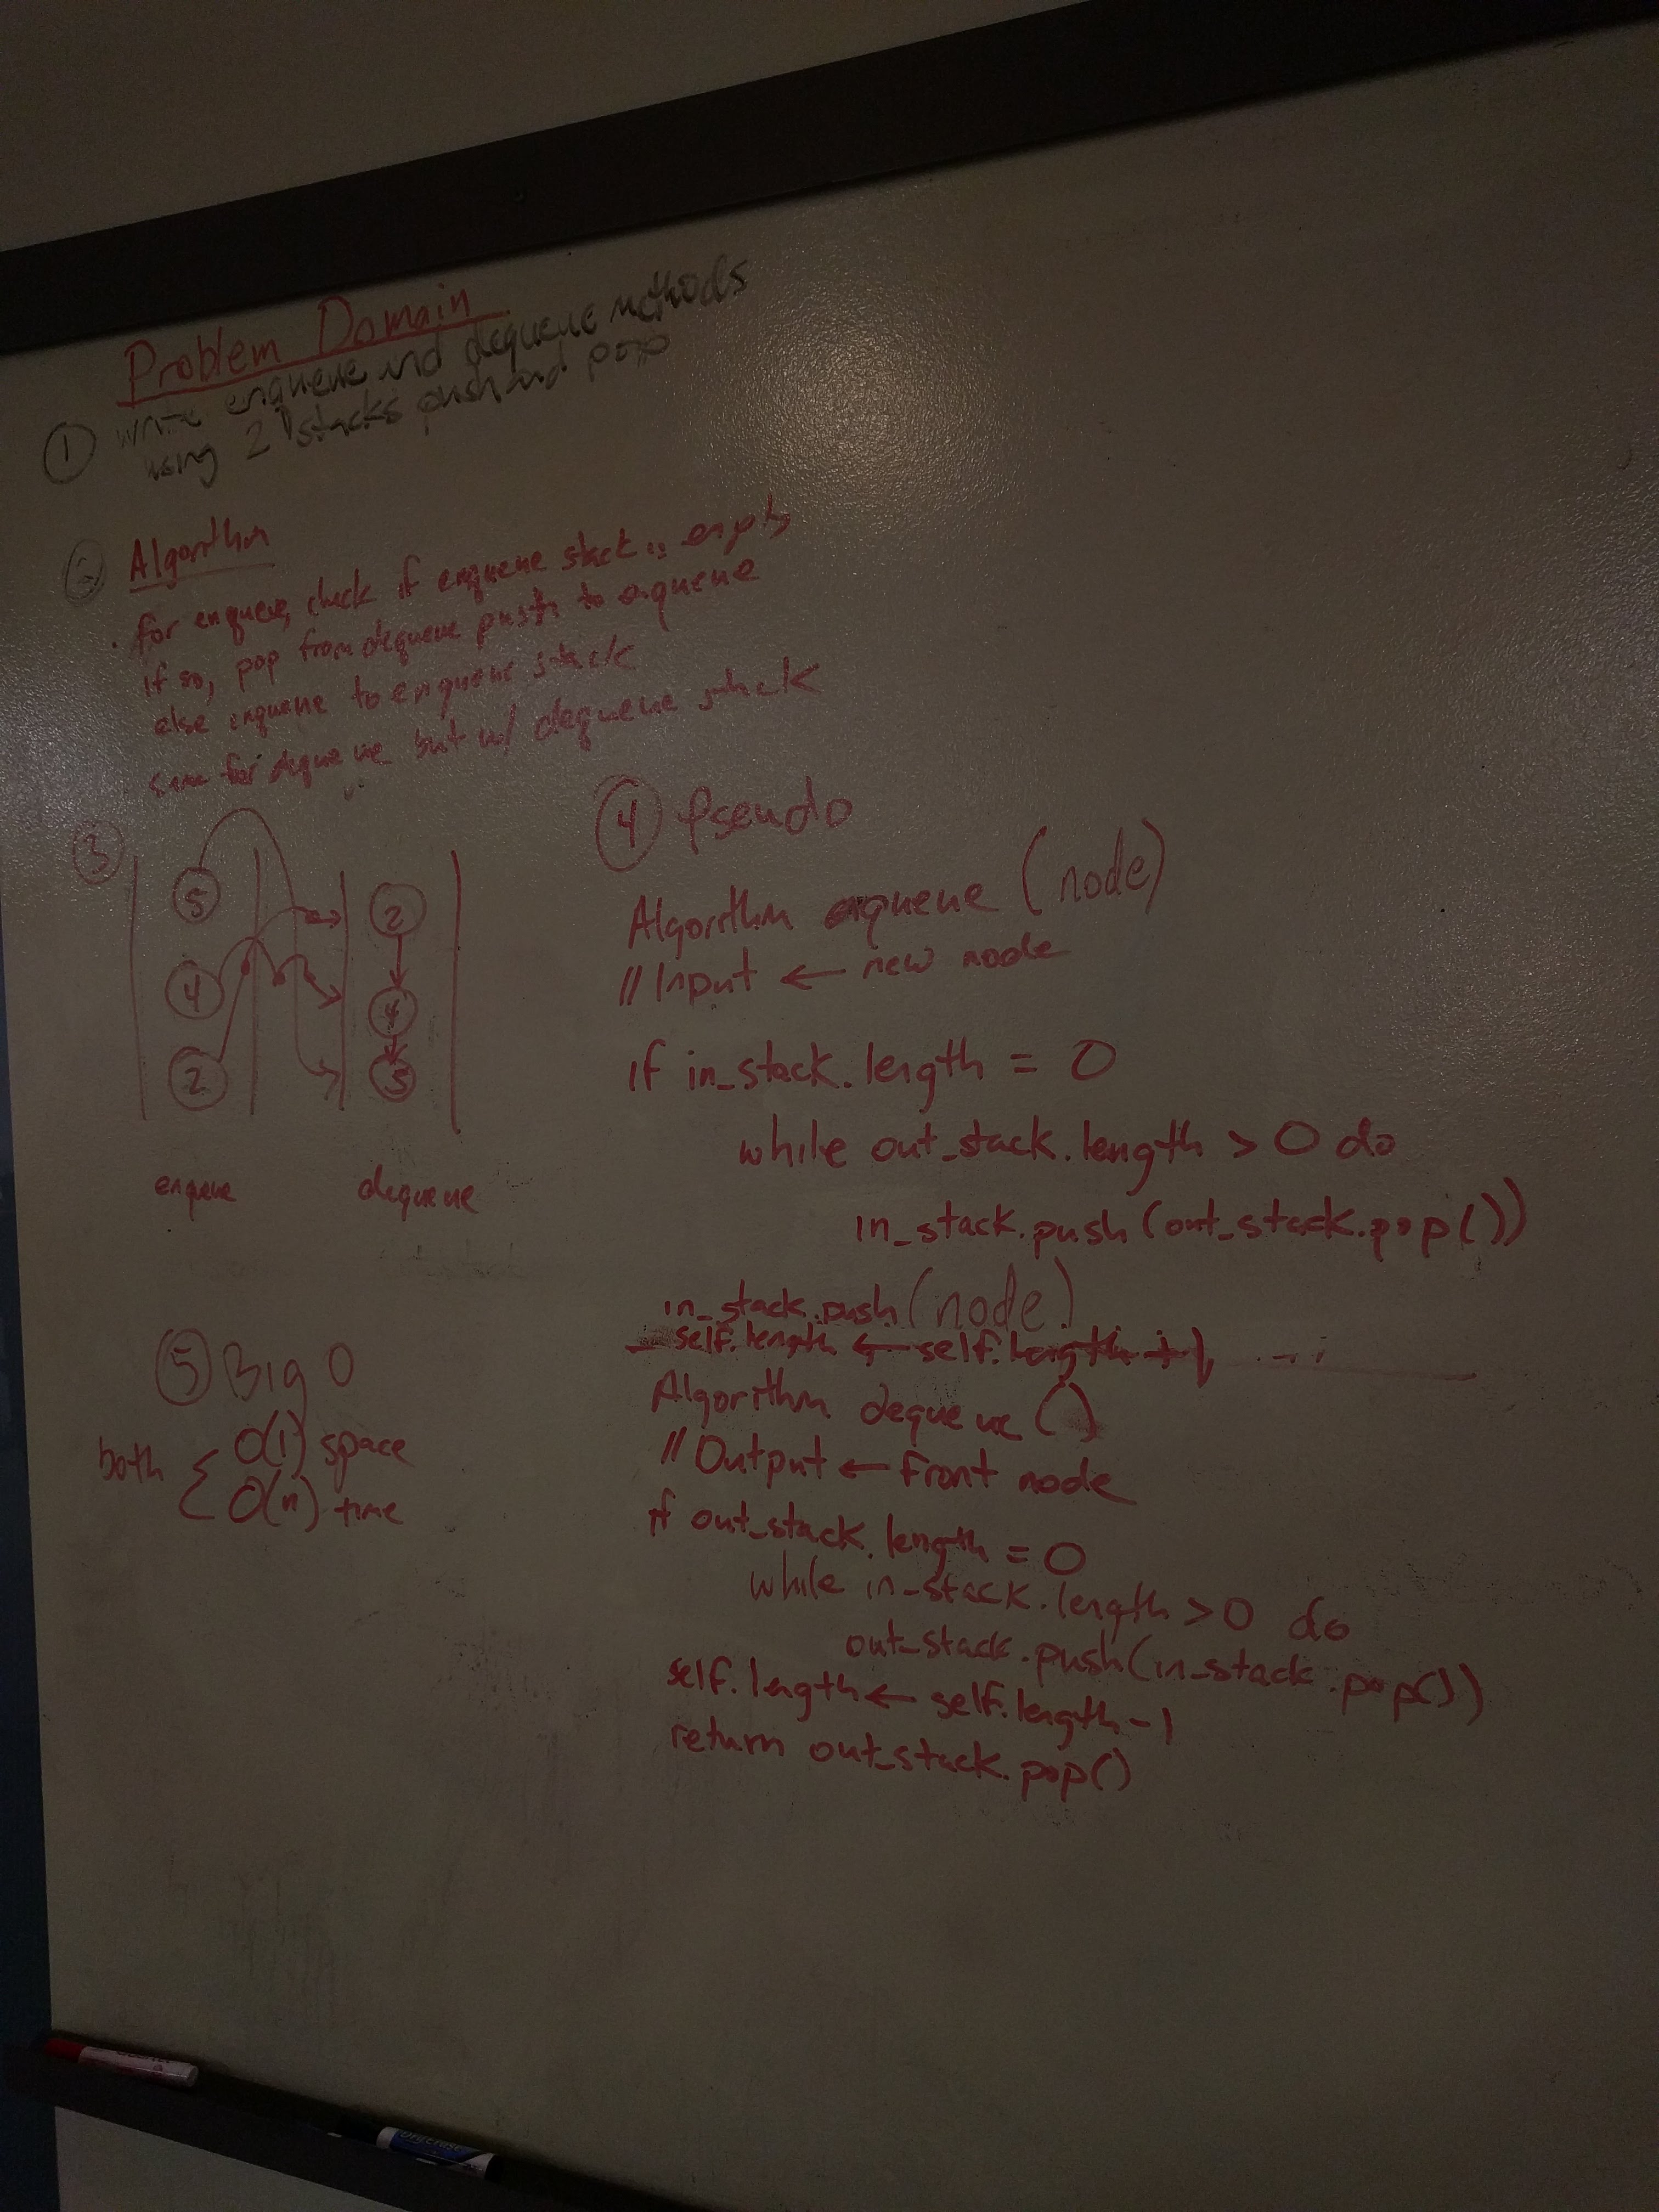 Problem Domain
① write enqueue and dequeue methods
using 2 stacks push and pop
② Algorithm
for enqueue, check if enqueue stack is empty
if so, pop from dequeue push to enqueue
else enqueue to enqueue stack
same for dequeue but w/ dequeue stack
③
5 2
4 4
2 5
enqueue dequeue
④ Pseudo
Algorithm enqueue (node)
// Input ← new node
if in_stack.length = 0
while out_stack.length > 0 do
in_stack.push(out_stack.pop())
in_stack.push(node)
self.length ← self.length + 1
Algorithm dequeue ()
// Output ← front node
if out_stack.length = 0
while in_stack.length > 0 do
out_stack.push(in_stack.pop())
self.length ← self.length - 1
return out_stack.pop()
⑤ Big O
both { O(1) space
O(n) time